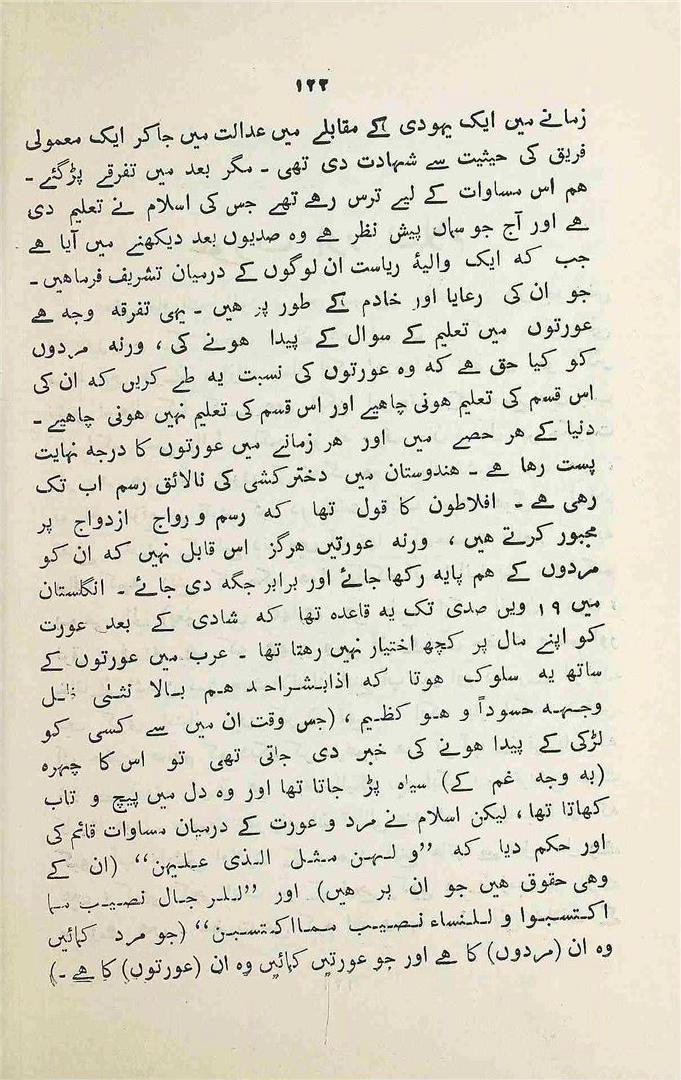 ۱۲۳
زمانے میں ایک یہودی کے مقابلے میں عدالت میں جاکر ایک معمولی
فریق کی حیثیت سے شہادت دی تھی ۔ مگر بعد میں تفرقے پڑگئے ۔
ہم اس مساوات کے لیے ترس رہے تھے جس کی اسلام نے تعلیم دی
ہے اور آج جو سماں پیش نظر ہے وہ صدیوں بعد دیکھنے میں آیا ہے
جب کہ ایک والیۂ ریاست ان لوگوں کے درمیان تشریف فرماہیں ۔
جو ان کی رعایا اور خادم کے طور پر ہیں ۔ یہی تفرقہ وجہ ہے
عورتوں میں تعلیم کے سوال کے پیدا ہونے کی ، ورنہ مردوں
کو کیا حق ہے کہ وہ عورتوں کی نسبت یہ طے کریں کہ ان کی
اس قسم کی تعلیم ہونی چاہیے اور اس قسم کی تعلیم نہیں ہونی چاہیے ۔
دنیا کے ہر حصے میں اور ہر زمانے میں عورتوں کا درجہ نہایت
پست رہا ہے ۔ ہندوستان میں دخترکشی کی نالائق رسم اب تک
رہی ہے ۔ افلاطون کا قول تھا کہ رسم و رواج ازدواج پر
مجبور کرتے ہیں ، ورنہ عورتیں ہرگز اس قابل نہیں کہ ان کو
مردوں کے ہم پایہ رکھا جائے اور برابر جگہ دی جائے ۔ انگلستان
میں ۱۹ ویں صدی تک یہ قاعدہ تھا کہ شادی کے بعد عورت
کو اپنے مال پر کچھ اختیار نہیں رہتا تھا ۔ عرب میں عورتوں کے
ساتھ یہ سلوک ہوتا کہ اذابشراحد ہم بالا نثنیٰ ظل
وجہہ حسوداً و ہو کظیم ، (جس وقت ان میں سے کسی کو
لڑکی کے پیدا ہونے کی خبر دی جاتی تھی تو اس کا چہرہ
(بہ وجہ غم کے) سیاہ پڑ جاتا تھا اور وہ دل میں پیچ و تاب
کھاتا تھا ، لیکن اسلام نے مرد و عورت کے درمیان مساوات قائم کی
اور حکم دیا کہ ”و لہن مثل الذی علیہن“ (ان کے
وہی حقوق ہیں جو ان پر ہیں) اور ”للرجال نصیب مما
اکتسبوا و للنساء نصیب ممااکتسبن“ (جو مرد کمائیں
وہ ان (مردوں) کا ہے اور جو عورتیں کمائیں وہ ان (عورتوں) کا ہے ۔)